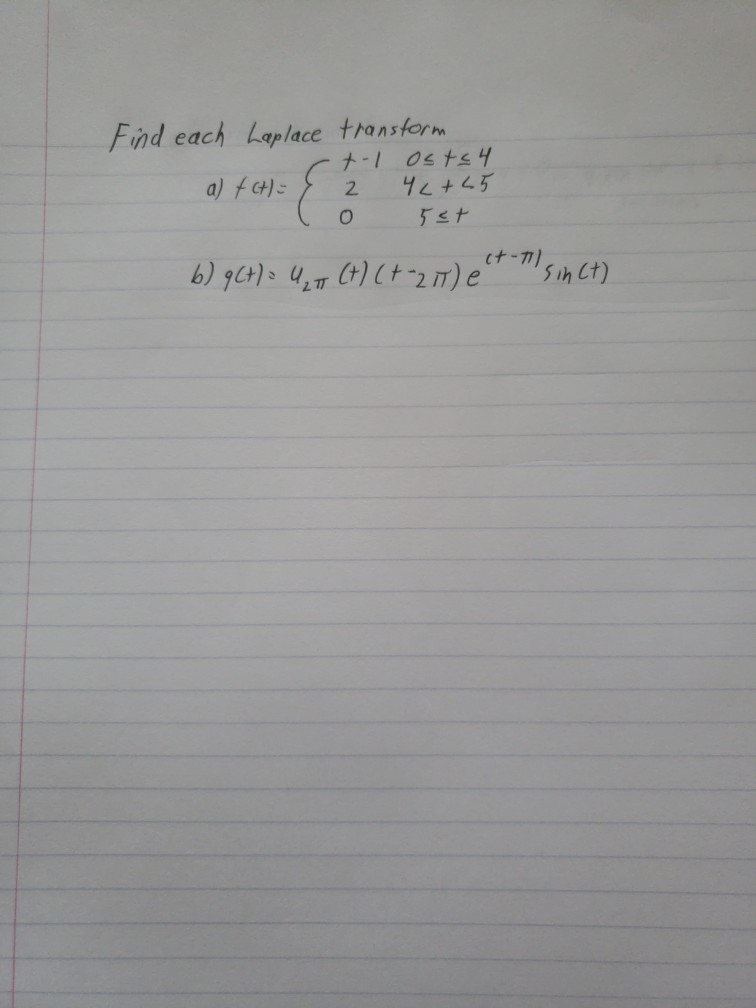 Find each Laplace transform
a) f(t) = { t-1 0≤t≤4
2 4<t<5
0 5≤t
b) g(t) = u_{2π}(t)(t-2π)e^{(t-π)}sin(t)